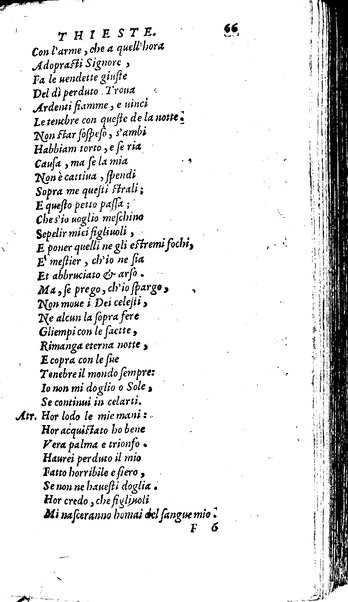 THIESTE. 66
Con l'arme, che a quell'hora
Adoprasti Signore,
Fa le uendette giuste
Del dì perduto. Troua
Ardenti fiamme, e uinci
Le tenebre con queste de la notte.
Non star sospeso, s'ambi
Habbiam torto, e se ria
Causa, ma se la mia
Non è cattiua, spendi
Sopra me questi strali;
E questo petto passa;
Che s'io uoglio meschino
Sepelir miei figliuoli,
E poner quelli ne gli estremi fochi,
E' mestier, ch'io ne sia
Et abbruciato & arso.
Ma, se prego, ch'io spargo,
Non moue i Dei celesti,
Ne alcun la sopra fere
Gliempi con le saette,
Rimanga eterna notte,
E copra con le sue
Tenebre il mondo sempre:
Io non mi doglio o Sole,
Se continui in celarti.
Atr. Hor lodo le mie mani:
Hor acquistato ho bene
Vera palma e trionfo.
Haurei perduto il mio
Fatto horribile e fiero,
Se non ne hauesti doglia.
Hor credo, che figliuoli
Mi nasceranno homai del sangue mio.
F 6